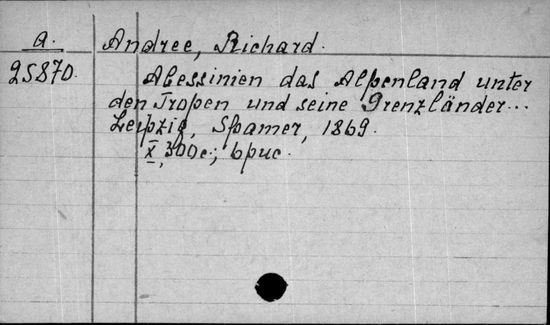 a.
25870.
Andree, Richard.
Abessinien das Alpenland unter
den Tropen und seine Grenzländer...
Leipzig, Spamer, 1869.
X, 300c.; 6 рис.